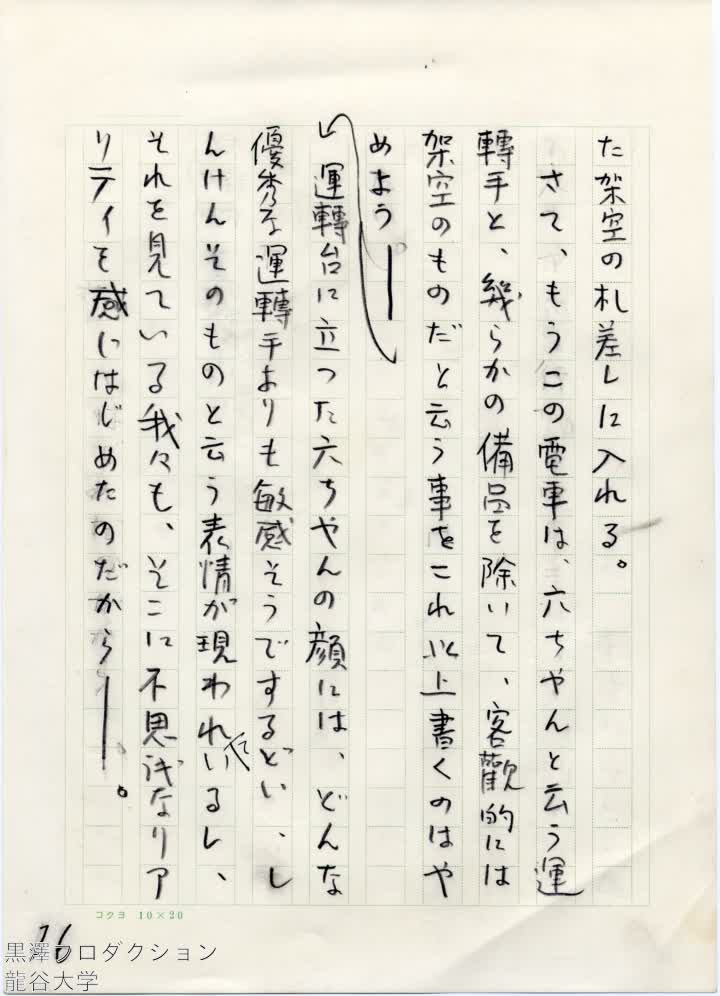 た架空の札差しに入れる。
さて、もうこの電車は、六ちゃんと云う運
轉手と、幾らかの備品を除いて、客觀的には
架空のものだと云う事をこれ以上書くのはや
めよう。――
運轉台に立つた六ちやんの顔には、どんな
優秀な運轉手よりも敏感そうでするどい、し
んけんそのものと云う表情が現われているし、
それを見ている我々も、そこに不思議なリア
リティを感じはじめたのだから――。
コクヨ 10×20
16
黒澤プロダクション
龍谷大学